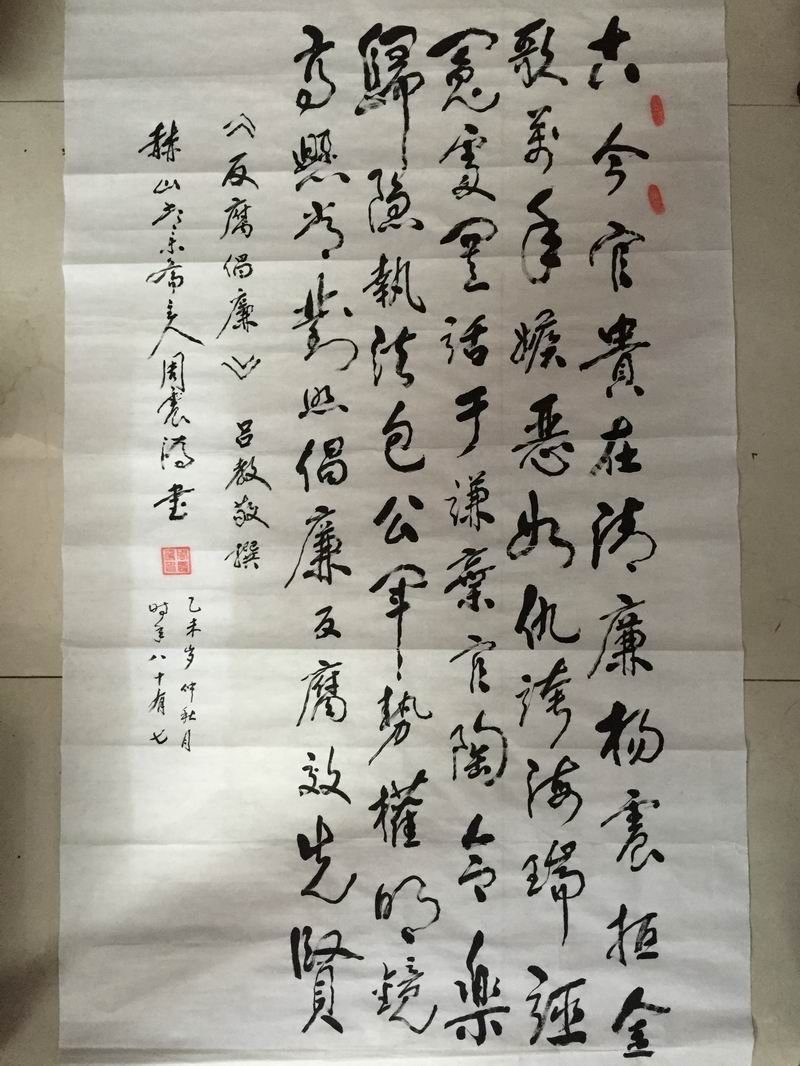 古今官貴在清廉楊震拒金
歌萬年嫉惡如仇誇海瑞誣
冤受置話于謙棄官陶令樂
歸隐執法包公軍勢權明鏡
高懸常對照倡廉反腐效先賢
《反腐倡廉》 吕教敬撰
赫山 齋主人周震鴻書
乙未岁仲秋月
时年八十有七